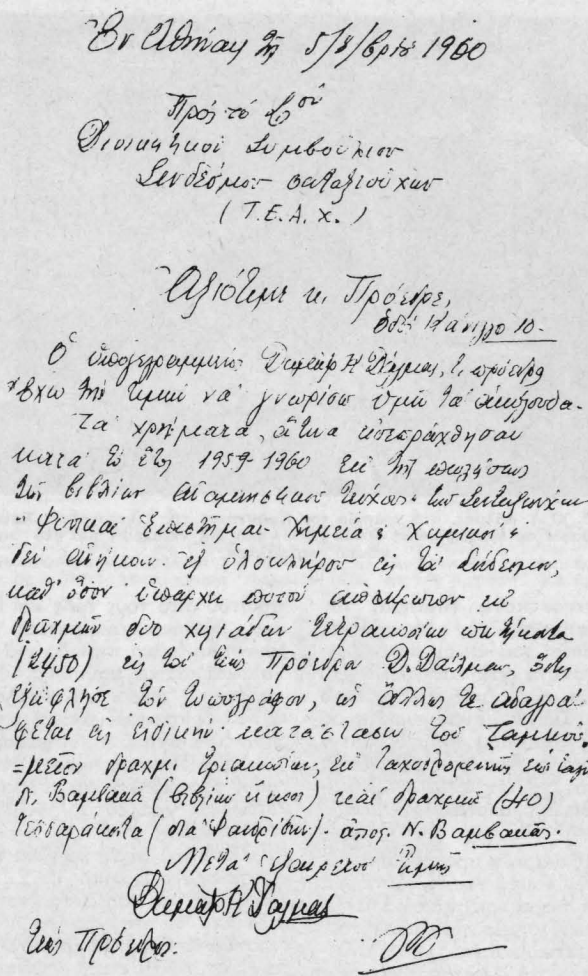 Ἐν Ἀθήναις τῇ 5/8/βρίου 1960
Πρὸς τὸ Σον
Διοικητικὸν Συμβούλιον
Συνδέσμου συνταξιούχων
(Τ.Ε.Α.Χ.)
Ἀξιότιμε κ. Πρόεδρε,
ὁδὸς Κάνιγγος 10.-
Ὁ ὑπογεγραμμένος Δαμιανὸς Δάλμας, τ. πρόεδρος
ἔχω τὴν τιμὴν νὰ γνωρίσω ὑμῖν τὰ ἀκόλουθα.
Τὰ χρήματα, ἅτινα εἰσεπράχθησαν
κατὰ τὸ ἔτος 1959-1960 ἐκ τῆς πωλήσεως
τῶν βιβλίων ἀναμνηστικοῦ τεύχους τῶν Συνταξιούχων
"Φυσικαὶ Ἐπιστῆμαι Χημεία & Χημικοί"
δὲν ἀνήκουν ἐξ ὁλοκλήρου εἰς τὸν Σύνδεσμον,
καθ' ὅσον ὑπάρχει ποσὸν ἐκ
δραχμῶν δύο χιλιάδων τετρακοσίων πεντήκοντα
(2450) εἰς τὸν τέως Πρόεδρον Δ. Δάλμαν, ὅστις
ἐξώφλησε τὸν τυπογράφον, ὡς ἄλλως τε ἀναγρά-
φεται εἰς εἰδικὴν κατάστασιν τοῦ Ταμείου.
=μεῖον δραχμὰς τριακοσίας, ἐκ ταχυδρομικῆς
Ν. Βαμβακᾶ (βιβλίων εἴκοσι) καὶ δραχμὰς (40)
τεσσαράκοντα (διὰ Φακρίδην). ἀπόσ. Ν. Βαμβακᾶς.
Μετὰ ἐξαιρέτου τιμῆς
Δάλμας
τέως Πρόεδρος.